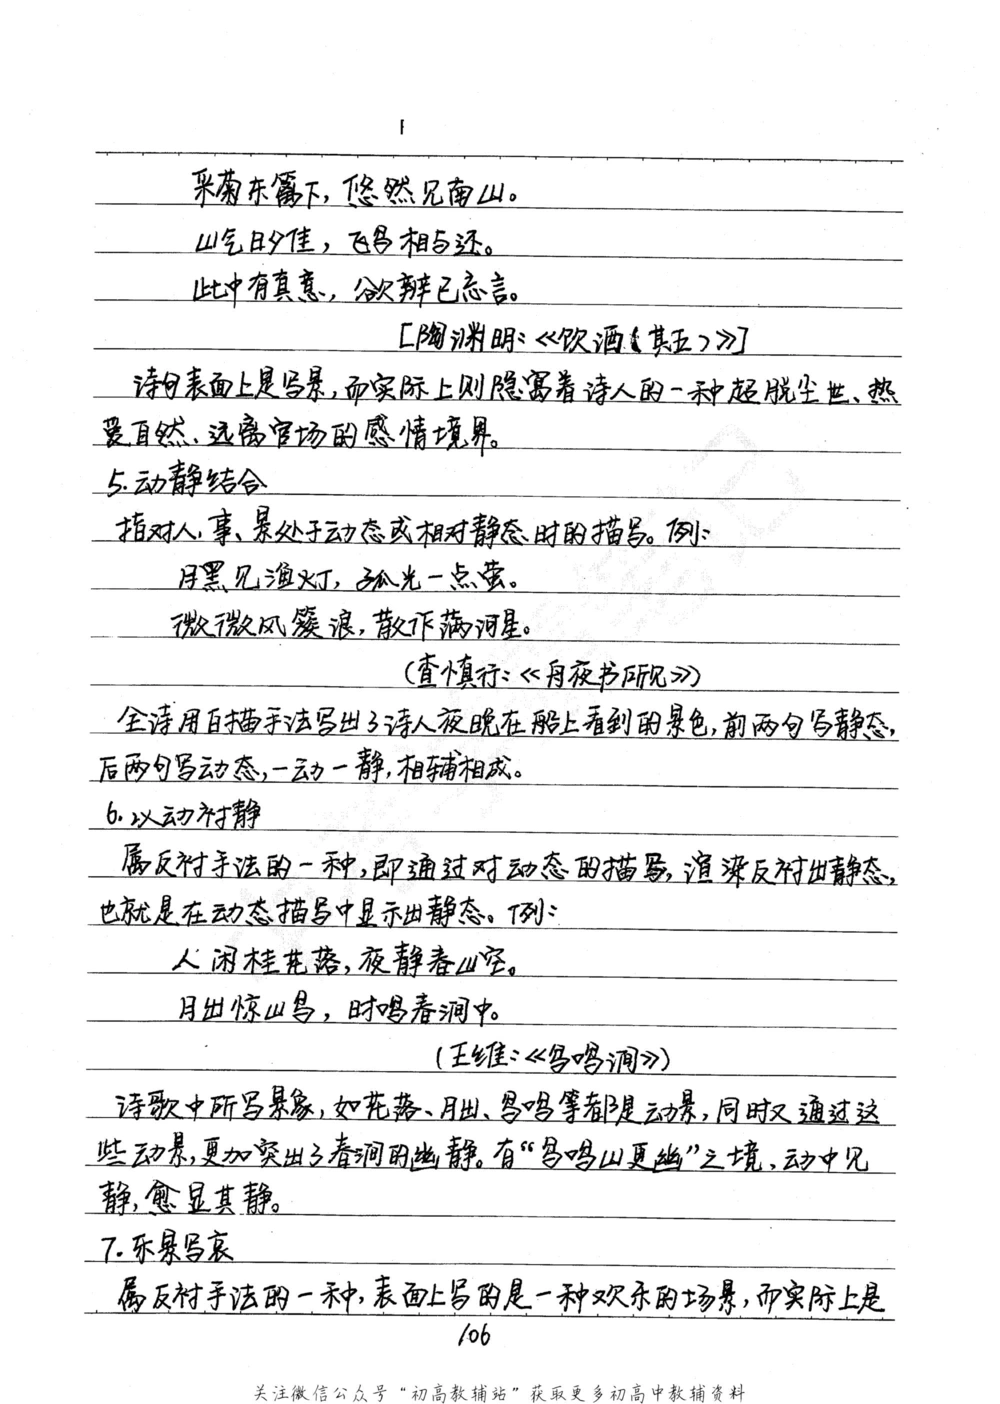 采菊东篱下，悠然见南山。
山气日夕佳，飞鸟相与还。
此中有真意，欲辨已忘言。
[陶渊明：《饮酒(其五)》]
诗句表面上是写景，而实际上则隐寓着诗人的一种超脱尘世、热
爱自然、远离官场的感情境界。
5.动静结合
指对人、事、景处于动态或相对静态时的描写。例：
月黑见渔灯，孤光一点萤。
微微风簇浪，散作满河星。
(查慎行：《舟夜书所见》)
全诗用白描手法写出了诗人夜晚在船上看到的景色，前两句写静态，
后两句写动态，一动一静，相辅相成。
6.以动衬静
属反衬手法的一种，即通过对动态的描写，渲染反衬出静态，
也就是在动态描写中显示出静态。例：
人闲桂花落，夜静春山空。
月出惊山鸟，时鸣春涧中。
(王维：《鸟鸣涧》)
诗歌中所写景象，如花落、月出、鸟鸣等都是动景，同时又通过这
些动景，更加突出了春涧的幽静。有“鸟鸣山更幽”之境、动中见
静，愈显其静。
7.乐景写哀
属反衬手法的一种，表面上写的是一种欢乐的场景，而实际上是
106
关注微信公众号“初高教辅站”获取更多初高中教辅资料